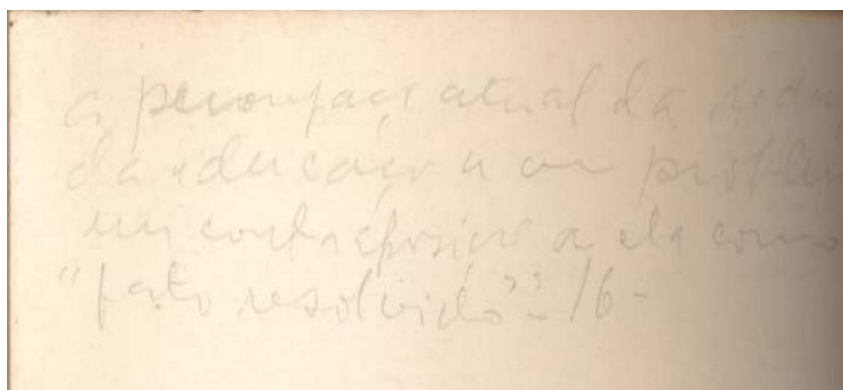 a preocupação atual da redu
da educação a um proble
em contraposição a ela como
"fato resolvido" - 16 -